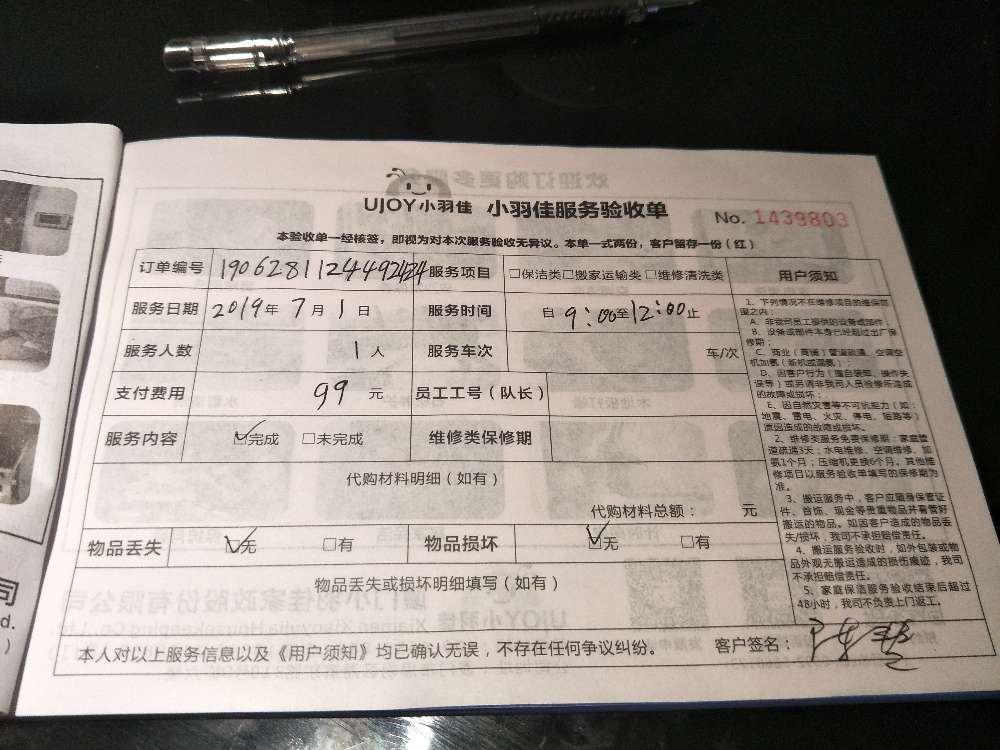 UJOY小羽佳 小羽佳服务验收单 No. 1439803
本验收单一经核签，即视为对本次服务验收无异议。本单一式两份，客户留存一份（红）
订单编号 19062811244492424 服务项目 □保洁类□搬家运输类 □维修清洗类 用户须知
服务日期 2019年 7月 1日 服务时间 自 9:00至12:00止
服务人数 1人 服务车次 车/次
支付费用 99 元 员工工号（队长）
服务内容 ☑完成 □未完成 维修类保修期
代购材料明细（如有）
代购材料总额： 元
物品丢失 ☑无 □有 物品损坏 ☑无 □有
物品丢失或损坏明细填写（如有）
本人对以上服务信息以及《用户须知》均已确认无误，不存在任何争议纠纷。 客户签名：
1、下列情况不在维修项目的维保范
围之内：
A、非我司员工提供的设备或部件；
B、设备或部件本身已经超过出厂保
修期；
C、商业（商铺）管道疏通、空调空
机加氨（新机或漏氨）；
D、因客户行为（擅自裱卸、操作失
误等）或另请非我司人员检修所造成
的故障或损坏；
E、因自然灾害等不可抗拒力（如：
地震、雷电、火灾、停电、短路等）
原因造成的故障或损坏。
2、维修类服务免费保修期：家庭管
道疏通3天；水电维修、空调维修、加
氨1个月；压缩机更换6个月。其他维
修项目以服务验收单填写的保修期为
准。
3、搬运服务中，客户应随身保管证
件、首饰、现金等贵重物品并看管好
搬运的物品。如因客户造成的物品丢
失/损坏，我司不承担赔偿责任。
4、搬运服务验收时，如外包装或物
品外观无搬运造成的损伤痕迹，我司
不承担赔偿责任。
5、家庭保洁服务验收结束后超过
48小时，我司不负责上门返工。
司
d.
)